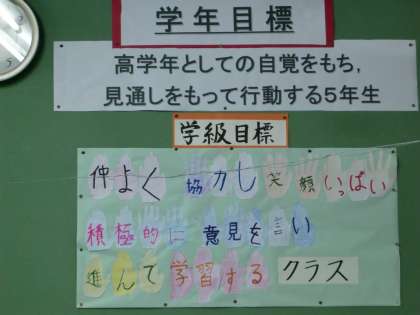 学年目標
高学年としての自覚をもち,
見通しをもって行動する5年生
学級目標
仲よく 協力し 笑顔いっぱい
積極的に 意見を言い
進んで学習する クラス